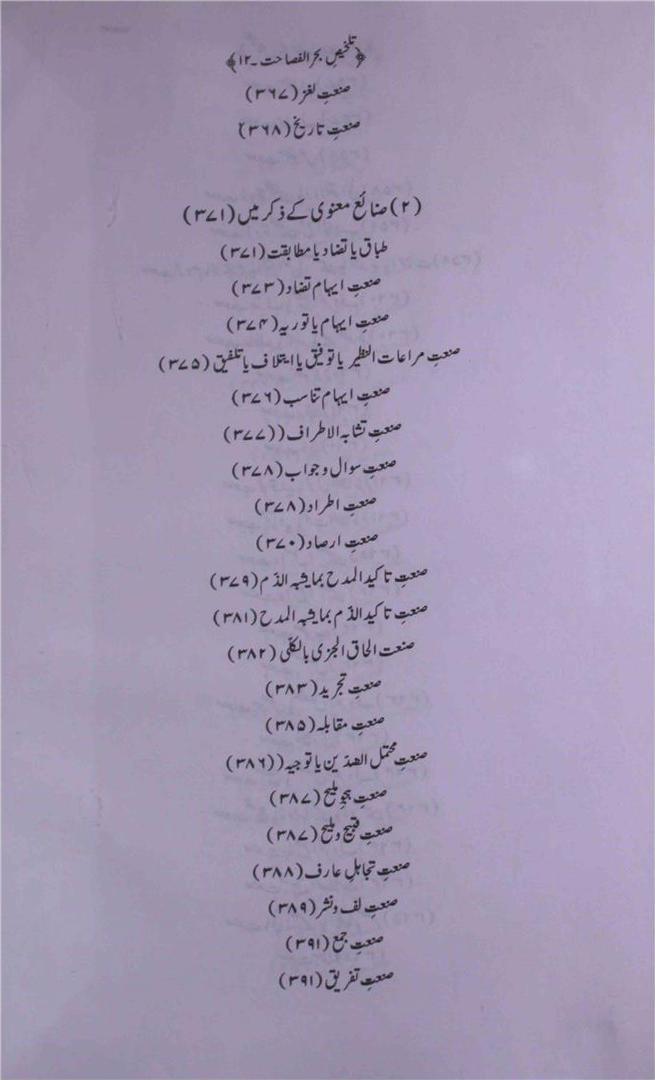 ﴿تلخیصِ بحر الفصاحت۔۱۲﴾
صنعتِ لغز (۳۶۷)
صنعتِ تاریخ (۳۶۸)
(۲) صنائع معنوی کے ذکر میں (۳۷۱)
طباق یا تضاد یا مطابقت (۳۷۱)
صنعتِ ایہام تضاد (۳۷۳)
صنعتِ ایہام یا توریہ (۳۷۴)
صنعتِ مراعات النظیر یا توفیق یا ایتلاف یا تلفیق (۳۷۵)
صنعتِ ایہام تناسب (۳۷۶)
صنعتِ تشابہ الاطراف ((۳۷۷)
صنعتِ سوال و جواب (۳۷۸)
صنعتِ اطراد (۳۷۸)
صنعتِ ارصاد (۳۷۰)
صنعتِ تاکید المدح بمایشبہ الذم (۳۷۹)
صنعتِ تاکید الذم بمایشبہ المدح (۳۸۱)
صنعت الحاق الجزی بالکلّی (۳۸۲)
صنعتِ تجرید (۳۸۳)
صنعتِ مقابلہ (۳۸۵)
صنعتِ محتمل الضدّین یا توجیہ ((۳۸۶)
صنعتِ ہجوِ ملیح (۳۸۷)
صنعتِ قبیح و ملیح (۳۸۷)
صنعتِ تجاہلِ عارف (۳۸۸)
صنعتِ لف و نشر (۳۸۹)
صنعتِ جمع (۳۹۱)
صنعتِ تفریق (۳۹۱)